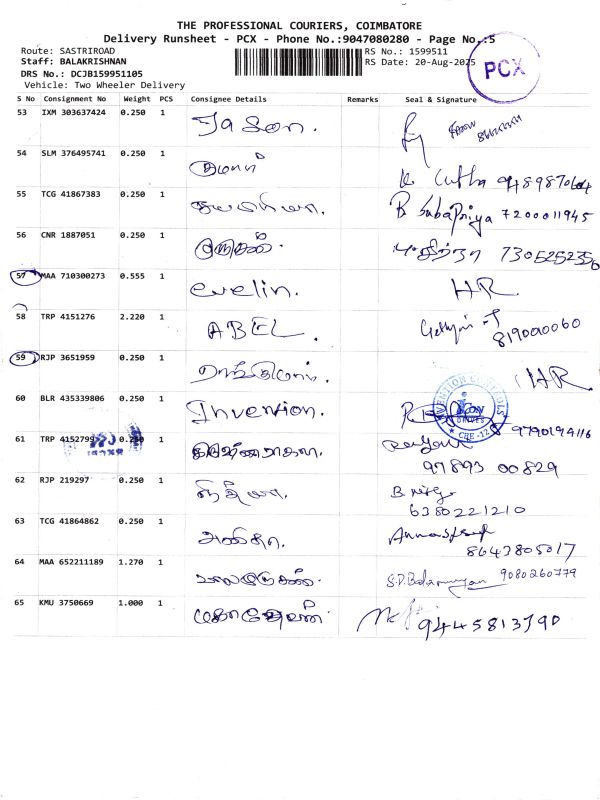 THE PROFESSIONAL COURIERS, COIMBATORE
Delivery Runsheet - PCX - Phone No.:9047080280 - Page No.:5
Route: SASTRIROAD
RS No.: 1599511
Staff: BALAKRISHNAN
RS Date: 20-Aug-2025
PCX
DRS No.: DCJB159951105
Vehicle: Two Wheeler Delivery
S No Consignment No Weight PCS Consignee Details Remarks Seal & Signature
53 IXM 303637424 0.250 1 Jason.
54 SLM 376495741 0.250 1
55 TCG 41867383 0.250 1 B Subapriya 7200011945
56 CNR 1887051 0.250 1 முருகன்.
57 MAA 710300273 0.555 1 evelin. HR
58 TRP 4151276 2.220 1 ABEL. 8190000060
59 RJP 3651959 0.250 1 HR
60 BLR 435339806 0.250 1 Invention. 9790194116
61 TRP 4152799 0.250 1 97893 00829
62 RJP 219297 0.250 1 நித்யா. 6380221210
63 TCG 41864862 0.250 1 8643805017
64 MAA 652211189 1.270 1 பாலமுருகன். S.D. Balamurugan 9080260779
65 KMU 3750669 1.000 1 9445813790